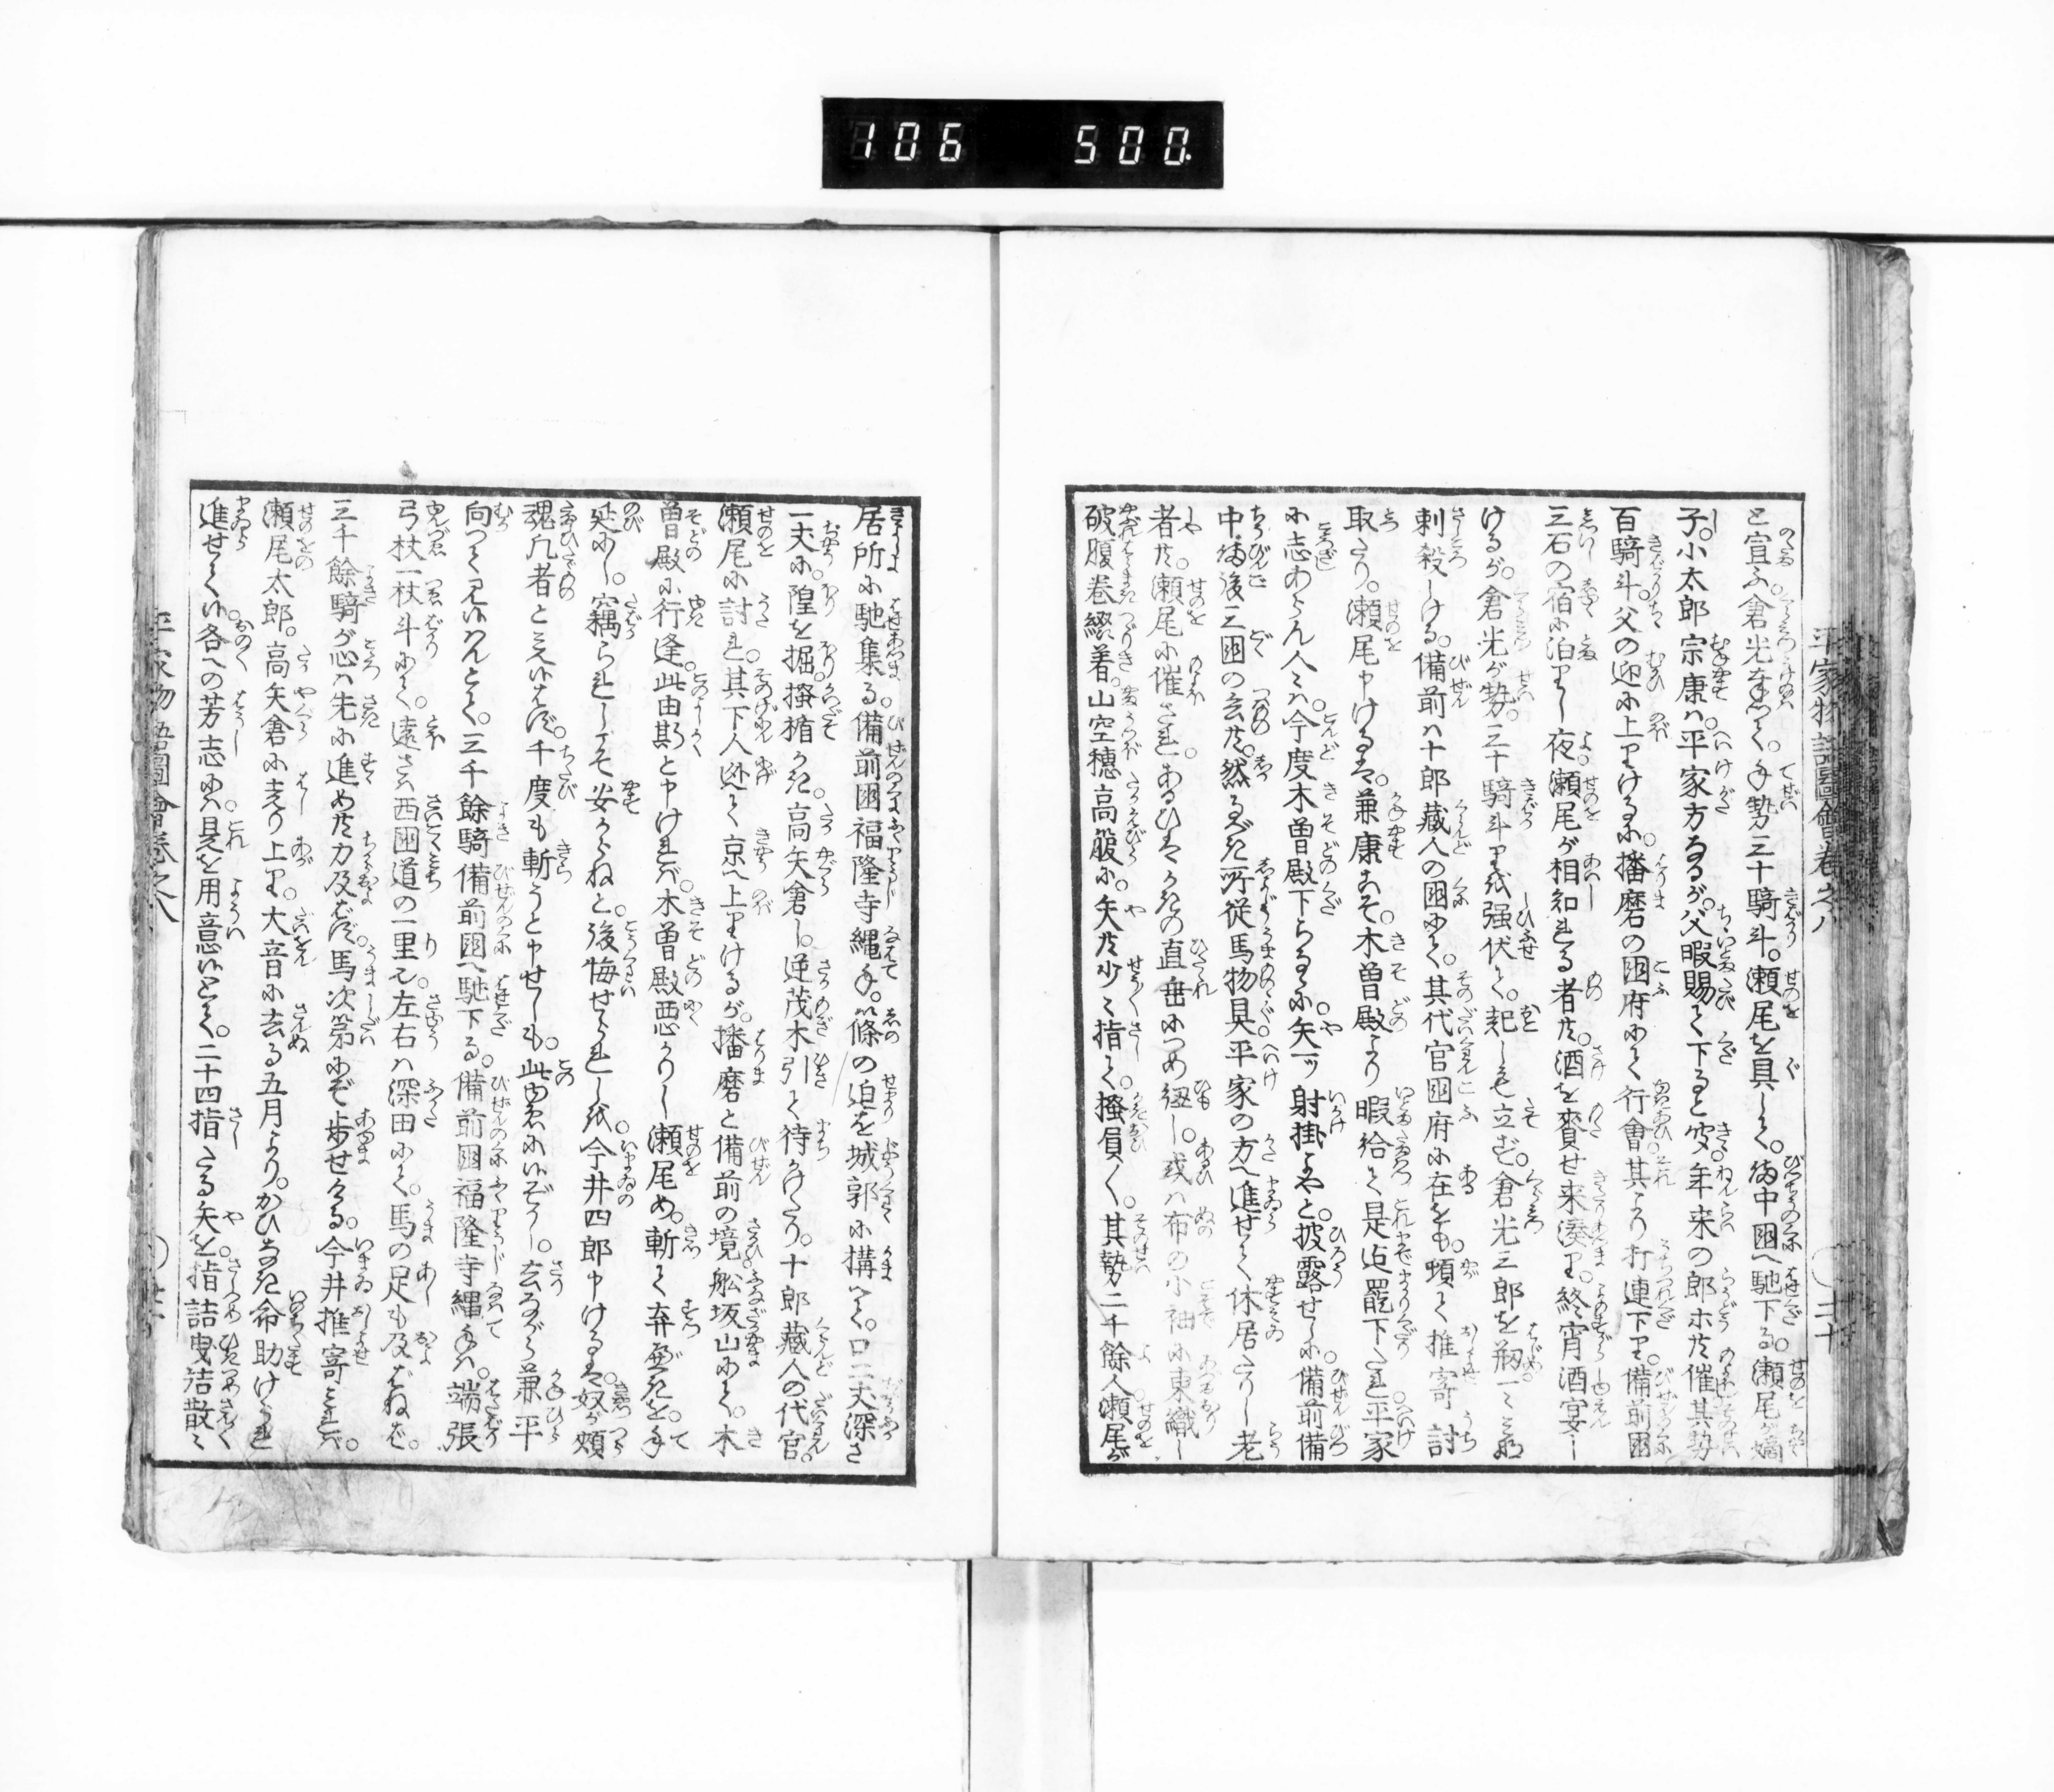 106 500.
平家物語圖會卷之八
二十
と宣ふ。倉光悉く。手勢三十騎斗。瀬尾を具して。備中国へ馳下る。瀬尾が嫡
子。小太郎宗康ハ。平家方なるが。父暇賜て下ると安。年来の郎等共催其勢
百騎斗。父の迎に上りけるに。播磨の国府にて行會。其より打連下り。備前国
三石の宿に泊りし夜。瀬尾が相知れる者共。酒を賚せ来湊り。終宵酒宴し
けるが。倉光が勢。三十騎斗り強伏て。起しも立ず。倉光三郎を初一々
刺殺しける。備前ハ十郎藏人の国にて。其代官国府に在をも。頓て推寄討
取たり。瀬尾申けるは。兼康こそ。木曽殿より暇給て是迄罷下たれ。平家
に志あらん人々ハ。今度木曽殿下らるゝに。矢一ッ射掛よやと。披露せしに。備前備
中備後三国の者共。然るべき所従馬物具平家の方へ進せて休居たりし老
者共。瀬尾に催され。あるひは の直垂につめ紐し。或ハ布の小袖に東織し
破腹巻綴着。山空穂高箙に。矢共少々指て。掻負く。其勢二千餘人瀬尾が
居所に馳集る。備前国福隆寺縄手。篠の迫を城郭に構へて。口二丈深さ
一丈に隍を掘。掻楯かき。高矢倉し。逆茂木引て待かけたり。十郎藏人の代官。
瀬尾に討れ。其下人迯て京へ上りけるが。播磨と備前の境舩坂山にて。木
曽殿に行逢。此由斯と申ければ。木曽殿悪かりし瀬尾め。斬て弃べきを。手
延にし。竊られしこそ安からねと。後悔せられしを。今井四郎申けるは。奴が頬
魂凡者と見えはず。千度も斬うと申せしも。此由ゑにいぞかし。去ながら兼平
向つて見いはんとて。三千餘騎備前国へ馳下る。備前国福隆寺縄手ハ。端張
弓杖一杖斗にて。遠さハ西国道の一里也。左右ハ深田にて。馬の足も及ばねば。
三千餘騎が心ハ先に進め共力及ばず。馬次第にぞ歩せける。今井推寄見れば。
瀬尾太郎。高矢倉に走り上り。大音に去る五月より。かひなき命助けられ
進せていハ。各々の芳志にハ。是を用意いとて。二十四指たる矢を。指詰曳詰散々
平家物語圖會卷之八